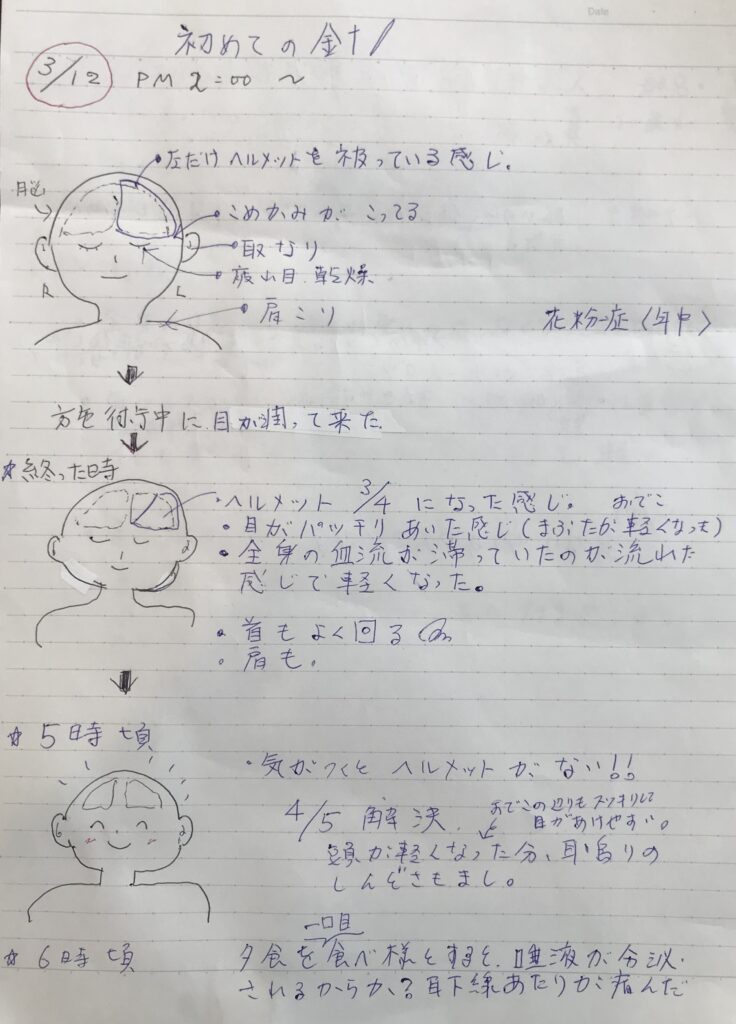 Date
初めての金十/
3/12 PM 2:00 〜
・左だけヘルメットを被っている感じ。
・こめかみがこってる
・取なり
・疲れ目、乾燥
・肩こり
R
L
花粉症(年中)
施術中に目が潤って来た
☆終った時
・ヘルメット 3/4 になった感じ。 おでこ
・目がパッチリあいた感じ(まぶたが軽くなった)
・全身の血流が滞っていたのが流れた
感じで軽くなった。
・首もよく回る
・肩も。
☆5時頃
・気がつくとヘルメットがない!!
4/5 解決
おでこの辺りもスッキリして
目があけやすい。
頭が軽くなった分、耳鳴りの
しんどさもまし。
☆6時頃
一口目
夕食を食べ様とすると、唾液が分泌
されるからか?耳下線あたりが痛んだ